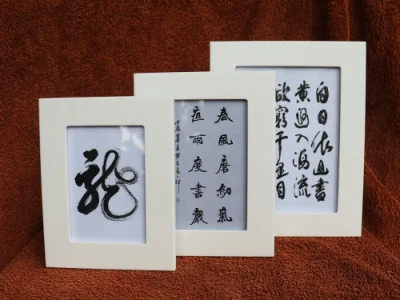 龍
春風磨劍氣
夜雨度書聲
白日依山盡
黄河入海流
欲窮千里目